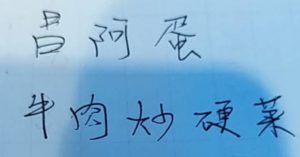 昌阿蛋
牛肉炒硬菜